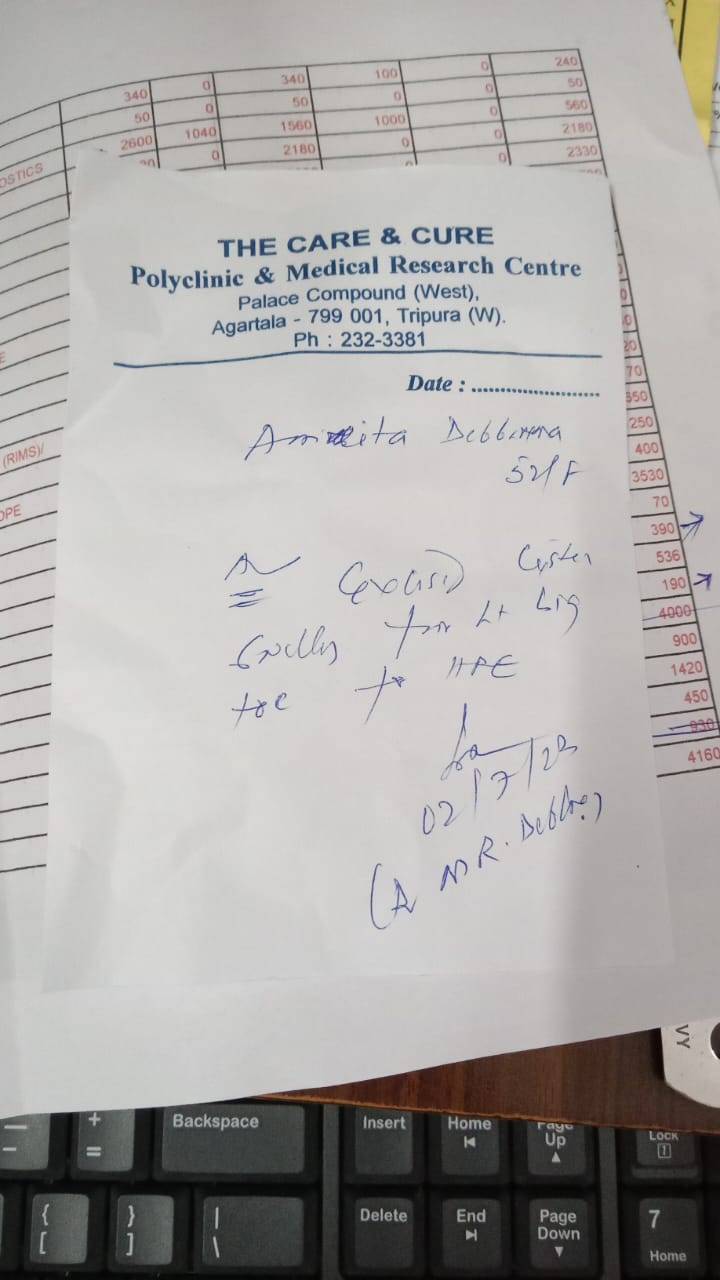 340 0 340 100 0 240
50 0 50 0 0 50
2600 1040 1560 1000 0 560
0 2180 0 0 2180
0 2330
OSTICS
THE CARE & CURE
Polyclinic & Medical Research Centre
Palace Compound (West),
Agartala - 799 001, Tripura (W).
Ph : 232-3381
Date : ........................
Debbarma
Excised
for Lt big
toe for HPE
02/7/23
R. Deb
(RIMS)/
OPE
E
20
70
650
250
400
3530
70
390
536
190
4000
900
1420
450
930
4160
VY
+
=
Backspace
Insert
Home
Page
Up
Lock
1
{
[
}
]
|
\
Delete
End
Page
Down
7
Home